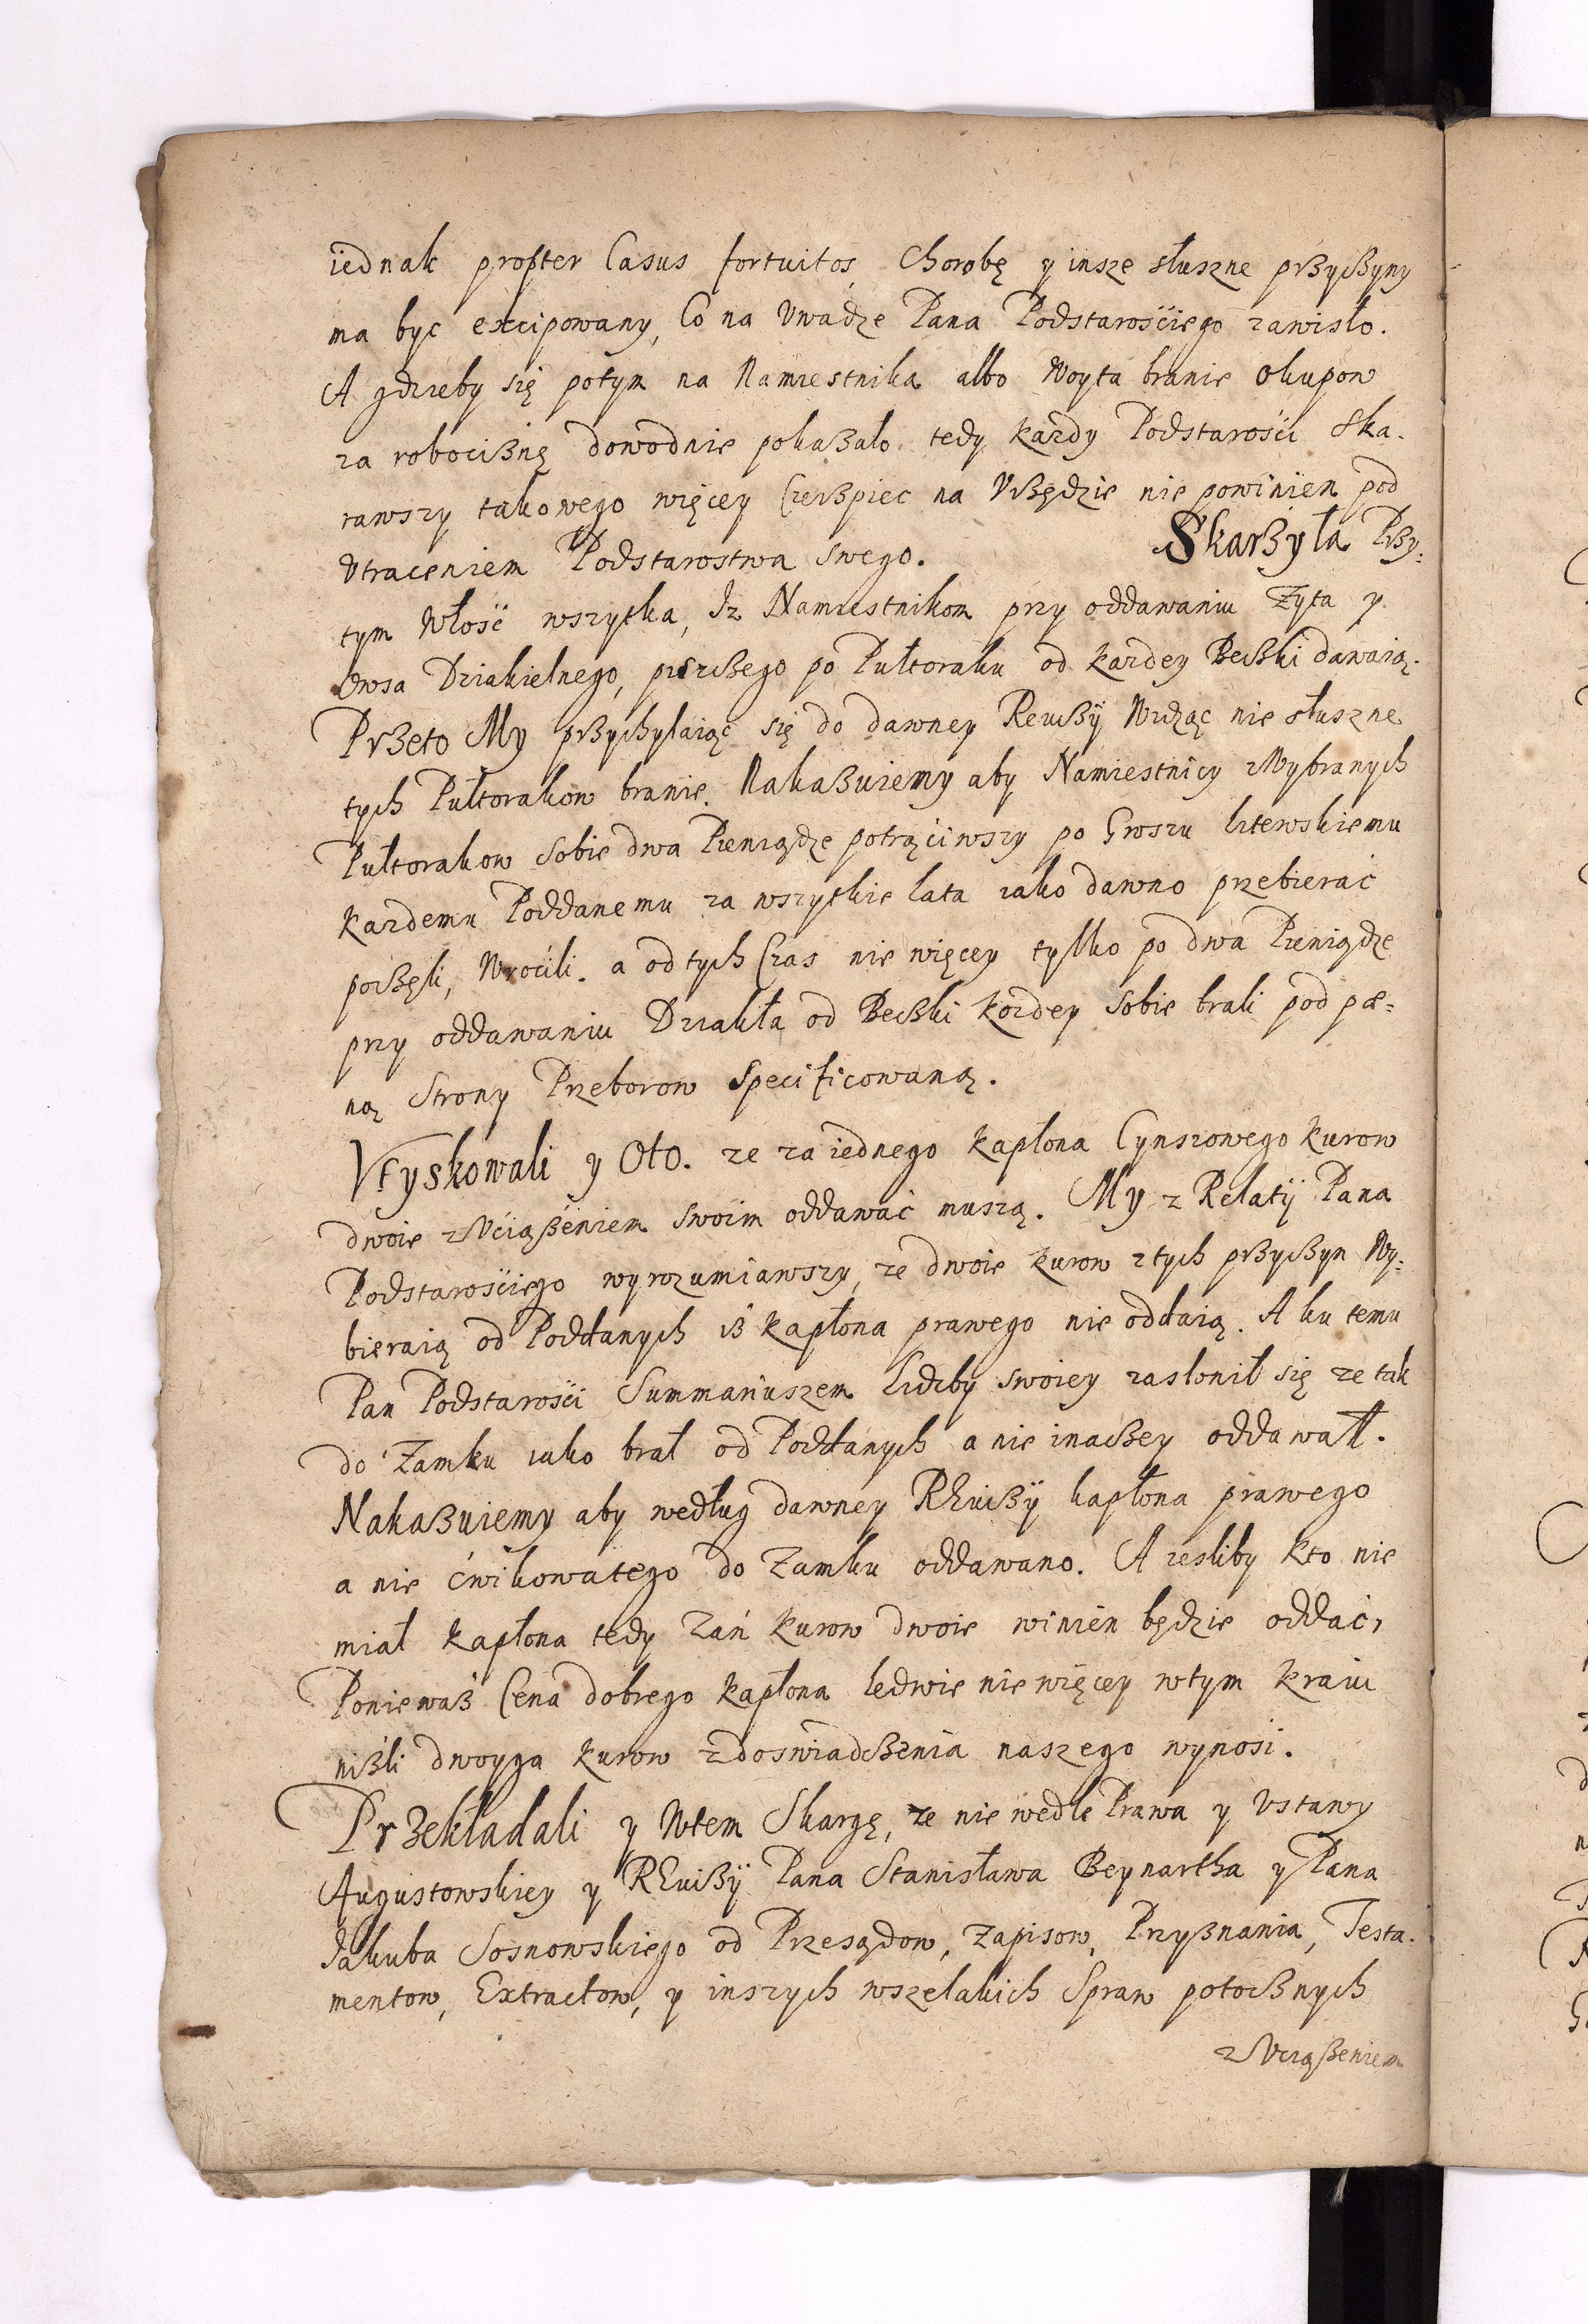 iednak propter Casus fortuitos, Chorobę y insze słuszne przyczyny
ma byc excipowany, Co na Uwadze Pana Podstarościego zawisło.
A gdzieby się potym na Namiestnika albo Woyta branie Okupow
za robociznę dowodnie pokazało tedy kazdy Podstarosci Ska-
rawszy takowego więcey Cierzpiec na Urzędzie nie powinien pod
Utraceniem Podstarostwa swego. Skarzyła Przy-
tym Włość wszytka, Iz Namiestnikom przy oddawaniu Zyta y
Owsa Dziakielnego, pierszego po Pułtoraku od kazdey Beczki dawaią.
Przeto My przychylaiąc się do dawney Rewizÿ Widząc nie słuszne
tych Pułtorakow branie. Nakazuiemy aby Namiestnicy z Wybranych
Pułtorakow sobie dwa Pieniądze potrąciwszy po Groszu litewskiemu
kazdemu Poddanemu za wszytkie lata iako dawno przebierać
poczęli, Wrócili. a od tych Czas nie więcey tylko po dwa Pieniądze
przy oddawaniu Dziakła od Beczki kozdey sobie brali pod pæ-
ną Strony Przeborow Specificowaną.
Utyskowali y Oto. ze za iednego kapłona Cynszowego kurow
dwoie z Uciązeniem swoim oddawać muszą. My z Relatÿ Pana
Podstarościego wyrozumiawszy, ze dwoie kurow z tych przyczyn Wy-
bieraią od Poddanych iz kapłona prawego nie oddaią. A ku temu
Pan Podstarosci Summariuszem Liczby swoiey zasłonił się ze tak
do Zamku iako brał od Poddanych a nie inaczey oddawał.
Nakazuiemy aby według dawney REwizÿ kapłona prawego
a nie ćwikowatego do Zamku oddawano. A iesliby kto nie
miał kapłona tedy Zań kurow dwoie winien będzie oddać,
Poniewaz Cena dobrego kapłona ledwie nie więcey w tym kraiu
nizli dwoyga kurow z doswiadczenia naszego wynosi.
Przekładali y Wtem Skargę, ze nie wedle Prawa y Ustawy
Augustowskiey y REwizÿ Pana Stanisława Beynartha y Pana
Jakuba Sosnowskiego od Przesądow, Zapisow, Przyznania, Testa-
mentow, Extractow, y inszych wszelakich Spraw potocznych
z Uciązeniem